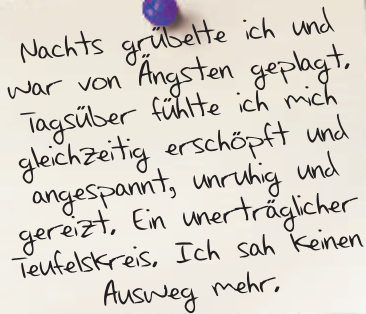 Nachts grübelte ich und
war von Ängsten geplagt.
Tagsüber fühlte ich mich
gleichzeitig erschöpft und
angespannt, unruhig und
gereizt. Ein unerträglicher
Teufelskreis. Ich sah keinen
Ausweg mehr.